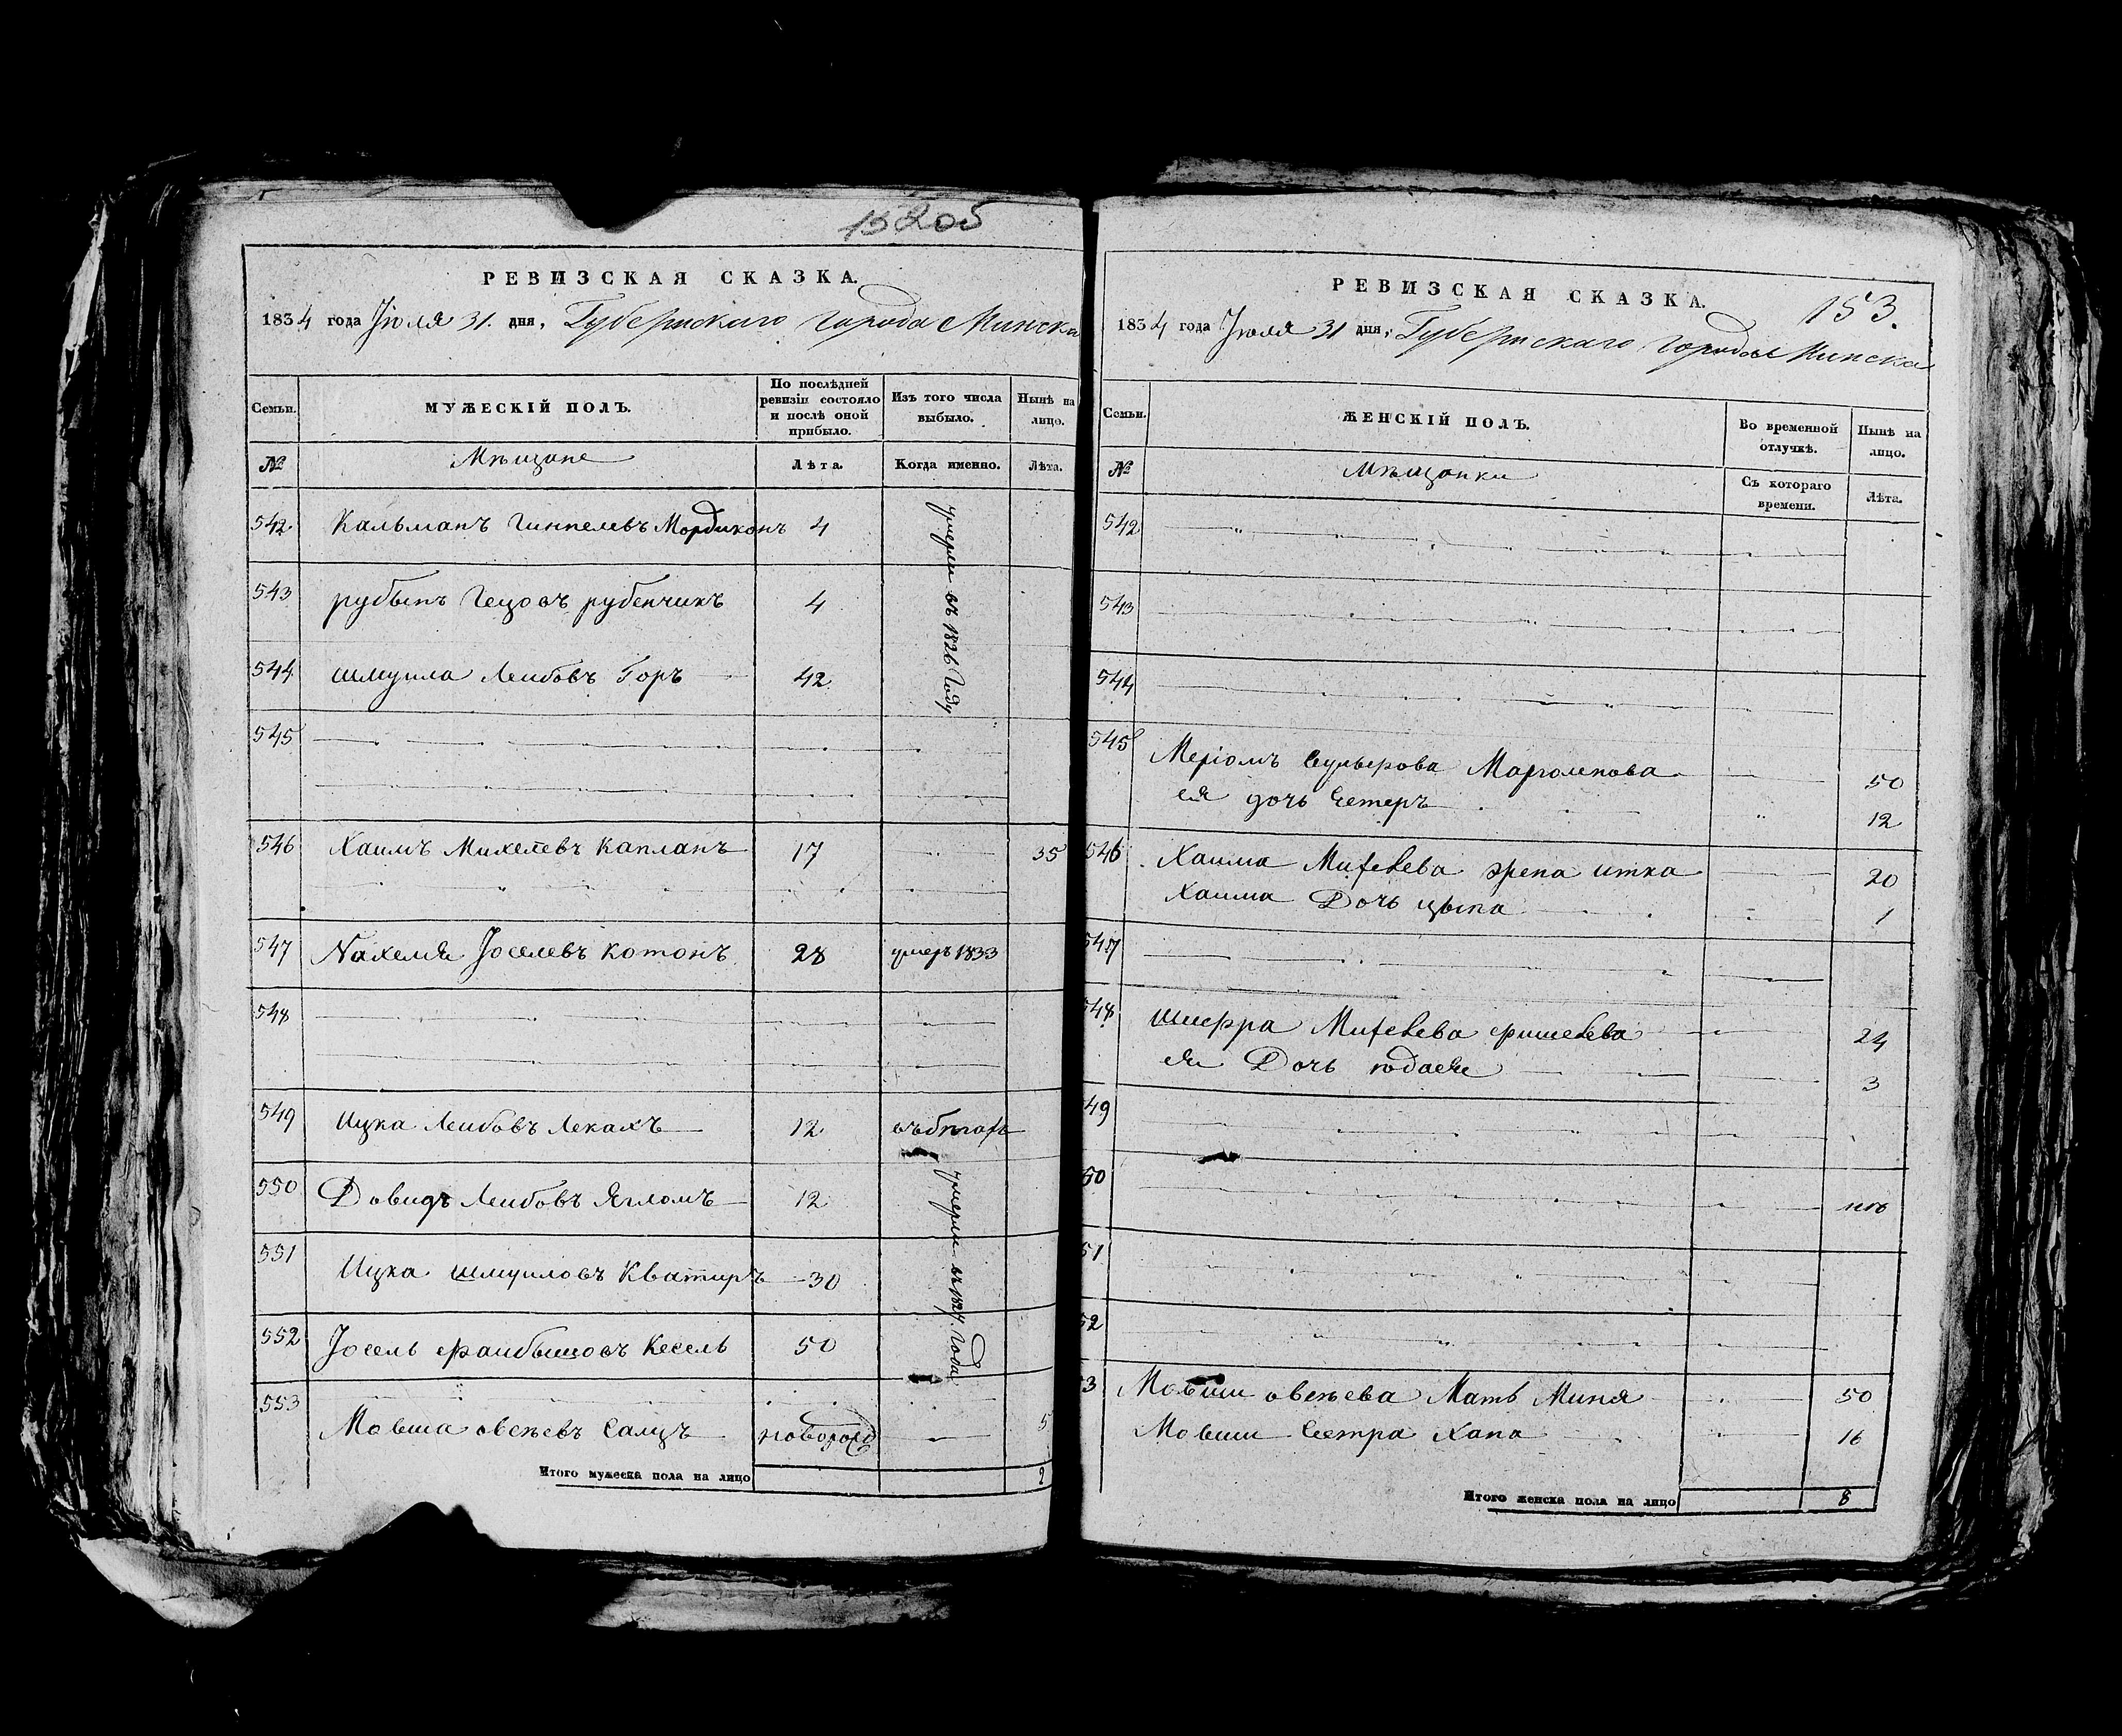 152об
РЕВИЗСКАЯ СКАЗКА.
1834 года Іюля 31. дня, Губернскаго города Минска
Семьи. МУЖЕСКІЙ ПОЛЪ. По послѣдней ревизіи состояло и послѣ оной прибыло. Изъ того числа выбыло. Нынѣ на лицо.
№ Мѣщане Лѣта. Когда именно. Лѣта.
542. Кальманъ Гимпелевъ Мордиконъ 4
умерли въ 1826 Году
543 рубынъ Гецовъ рубенчикъ 4
544 шмуила Леибовъ Горъ 42
545
546 Хаимъ Михелевъ Капланъ 17 35
547 Нахемя Іоселевъ котонъ 28 умеръ 1833
548
549 Ицка Леибовъ Лекахъ 12
550 Довидъ Леибовъ Ягломъ 12
умерли въ 1827. Года
551 Ицка шмуиловъ Кватиръ 30
552 Іосель фаибышовъ Кесель 50
553
Мовша овсѣевъ Салцъ новорожд 5
Итого мужеска пола на лицо 2
153.
РЕВИЗСКАЯ СКАЗКА.
1834 года Іюля 31 дня, Губернскаго города Минска
Семьи. ЖЕНСКІЙ ПОЛЪ. Во временной отлучкѣ. Нынѣ на лицо.
№ Мѣщанки Съ котораго времени. Лѣта.
542
543
544
545 Меріомъ Марголинова 50
ея дочь Естеръ 12
546 Хаима Михелева жена итка 20
Хаима Дочь цыпа 1
547
548 шифра Михелева фишелева 24
ея Дочь 3
49
50
51
52
3 Мовши овсѣева Мать Миня 50
Мовши Сестра Хана 16
Итого женска пола на лицо 8